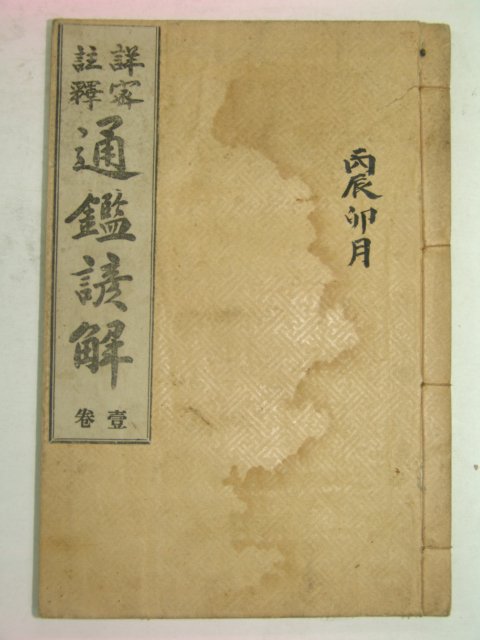 詳密
註釋
通鑑諺解
卷壹
丙辰 卯月